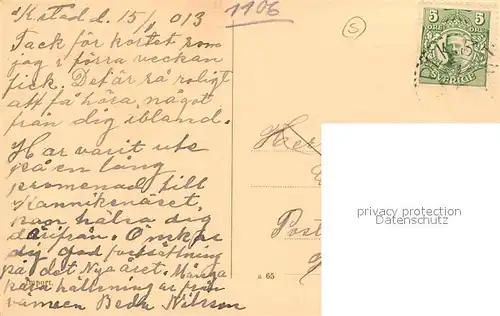 K.stad d. 15/1 013
Tack för kortet som
jag i förra veckan
fick. Det är så roligt
att få höra något
från dig ibland.
Har varit ute
på en lång
promenad till
Kannikenäset,
kan hälsa dig
därifrån. Önskar
dig god fortsättning
på det Nya året. Många
kära hälsningar från
vännen Beda Nilsson
1106
5
5 5
ÖRE ÖRE
SVERIGE
Herr
Post
privacy protection
VERSANDHANDEL
a 65
Import.